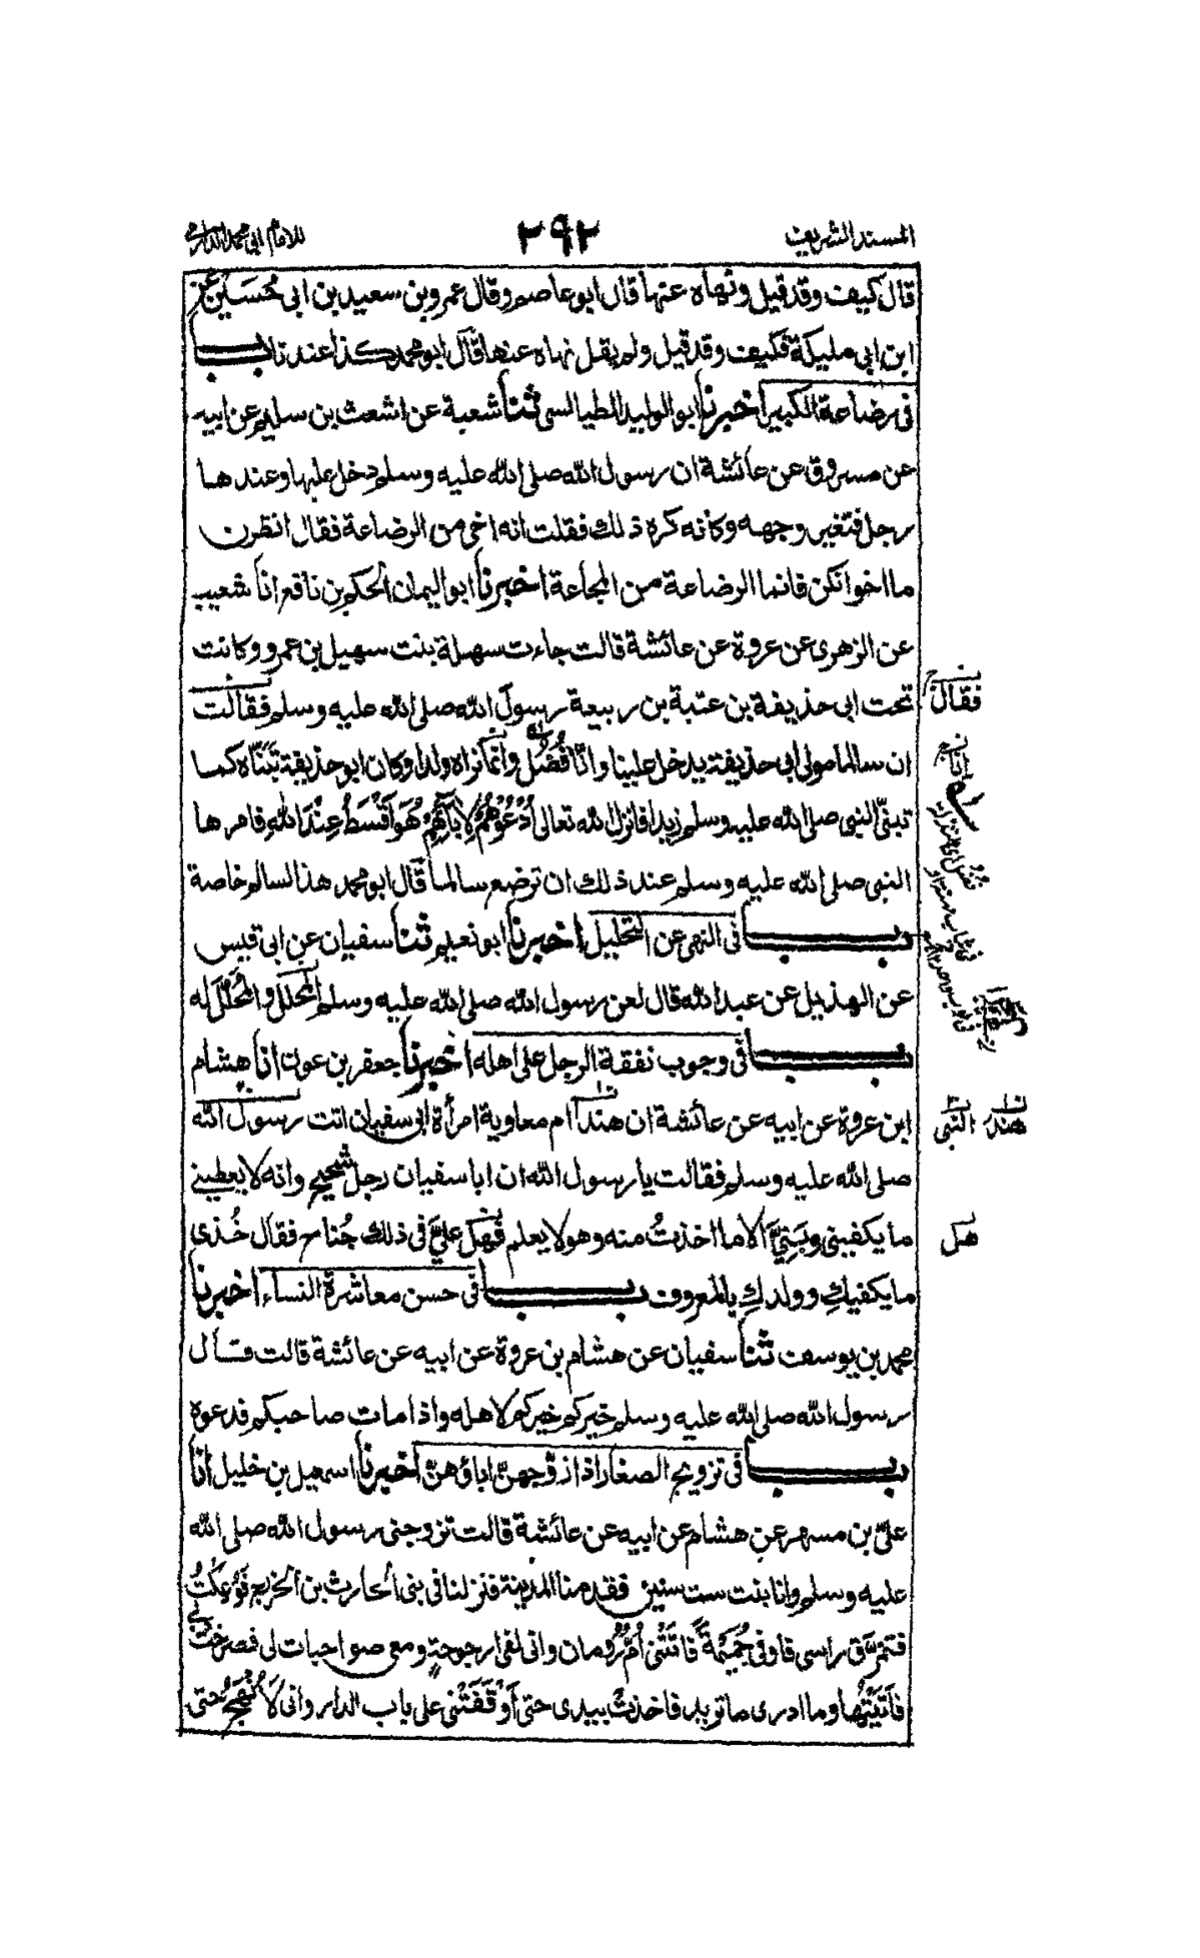 المسند الشريف
٢٩٢
للامام ابي محمد الدارمي
قال كيف وقد قيل ونهاه عنها قال ابو عاصم وقال عمرو بن سعيد بن ابى حسين عن
ابن ابى مليكة فكيف وقد قيل ولم يقل نهاه عنها قال ابو محمد كذا عندنا باب
فى رضاعة الكبير اخبرنا ابو الوليد الطيالسى ثنا شعبة عن اشعث بن سليم عن ابيه
عن مسروق عن عائشة ان رسول الله صلى الله عليه وسلم دخل عليها وعندها
رجل فتغير وجهه وكانه كره ذلك فقلت انه اخى من الرضاعة فقال انظرن
ما اخوانكن فانما الرضاعة من المجاعة اخبرنا ابو اليمان الحكم بن نافع انا شعيب
عن الزهرى عن عروة عن عائشة قالت جاءت سهلة بنت سهيل بن عمرو وكانت
تحت ابى حذيفة بن عتبة بن ربيعة رسول الله صلى الله عليه وسلم فقالت
فقال
ان سالما مولى ابى حذيفة يدخل علينا وانا فُضُل وانما نراه ولدا وكان ابو حذيفة تَبَنّاه كما
تبنّى النبى صلى الله عليه وسلم زيدا فانزل الله تعالى اُدْعُوْهُمْ لِاٰبَآئِهِمْ هُوَ اَقْسَطُ عِنْدَ اللهِ فامرها
النبى صلى الله عليه وسلم عند ذلك ان ترضع سالما قال ابو محمد هذا لسالم خاصة
باب فى النهى عن التحليل اخبرنا ابو نعيم ثنا سفيان عن ابى قيس
عن الهذيل عن عبد الله قال لعن رسول الله صلى الله عليه وسلم المحلل والمُحَلَّلَ له
باب فى وجوب نفقة الرجل على اهله اخبرنا جعفر بن عون انا هشام
ابن عروة عن ابيه عن عائشة ان هندا ام معاوية امرأة ابى سفيان اتت رسول الله
هند النبى
صلى الله عليه وسلم فقالت يا رسول الله ان ابا سفيان رجل شحيح وانه لا يعطينى
ما يكفينى وبَنِيَّ الا ما اخذتُ منه وهو لا يعلم فهل عليَّ فى ذلك جُناح فقال خُذى
هل
ما يكفيكِ وولدكِ بالمعروف باب فى حسن معاشرة النساء اخبرنا
محمد بن يوسف ثنا سفيان عن هشام بن عروة عن ابيه عن عائشة قالت قال
رسول الله صلى الله عليه وسلم خيركم خيركم لاهله واذا مات صاحبكم فدعوه
باب فى تزويج الصغار اذا زوّجهنّ اباؤهنّ اخبرنا اسمعيل بن خليل انا
علىّ بن مسهر عن هشام عن ابيه عن عائشة قالت تزوجنى رسول الله صلى الله
عليه وسلم وانا بنت ست سنين فقدمنا المدينة فنزلنا فى بنى الحارث بن الخزرج فَوُعِكْتُ
فتمرّق راسى فاوفى جُمَيْمَةً فاتَتْنى اُمُّ رُومان وانى لفى ارجوحةٍ ومعى صواحبات لى فصرخت بى
فاَتَيْتُها وما ادرى ما تريد فاخذتْ بيدى حتى اَوْقَفَتْنى على باب الدار وانى لَاُنْهَجُ حتى